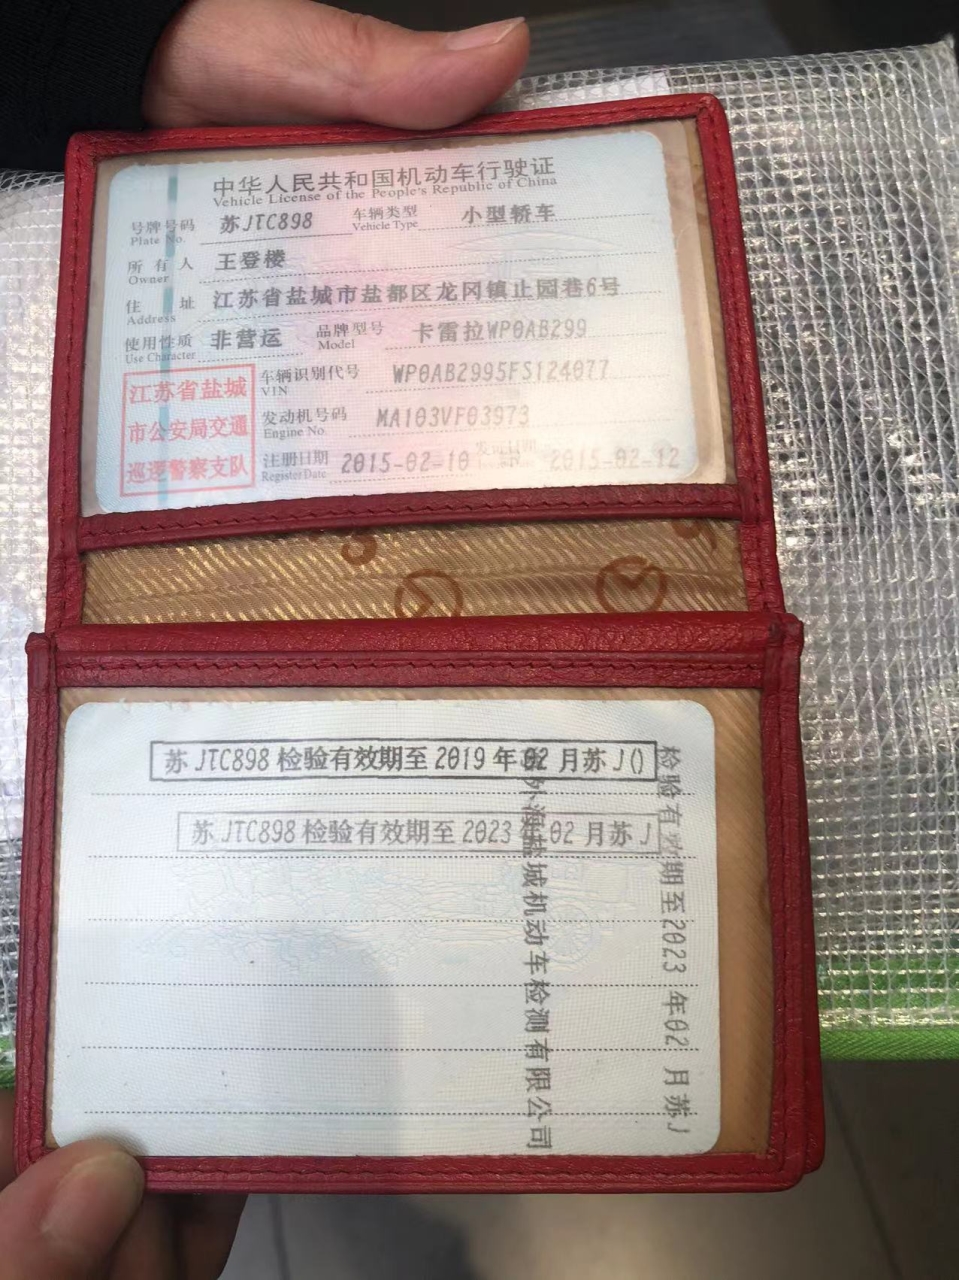 中华人民共和国机动车行驶证
Vehicle License of the People's Republic of China
号牌号码 苏JTC898 车辆类型 小型轿车
Plate No. Vehicle Type
所有人 王登楼
Owner
住址 江苏省盐城市盐都区龙冈镇止园巷6号
Address
使用性质 非营运 品牌型号 卡雷拉WP0AB299
Use Character Model
江苏省盐城
市公安局交通
巡逻警察支队
车辆识别代号 WP0AB2995FS124077
VIN
发动机号码 MA103VF03973
Engine No.
注册日期 2015-02-10 发证日期 2015-02-12
Register Date
苏JTC898检验有效期至2019年02月苏J()
苏JTC898检验有效期至2023 02月苏J
外海盐城机动车检测有限公司
检验有效期至2023年02月苏J